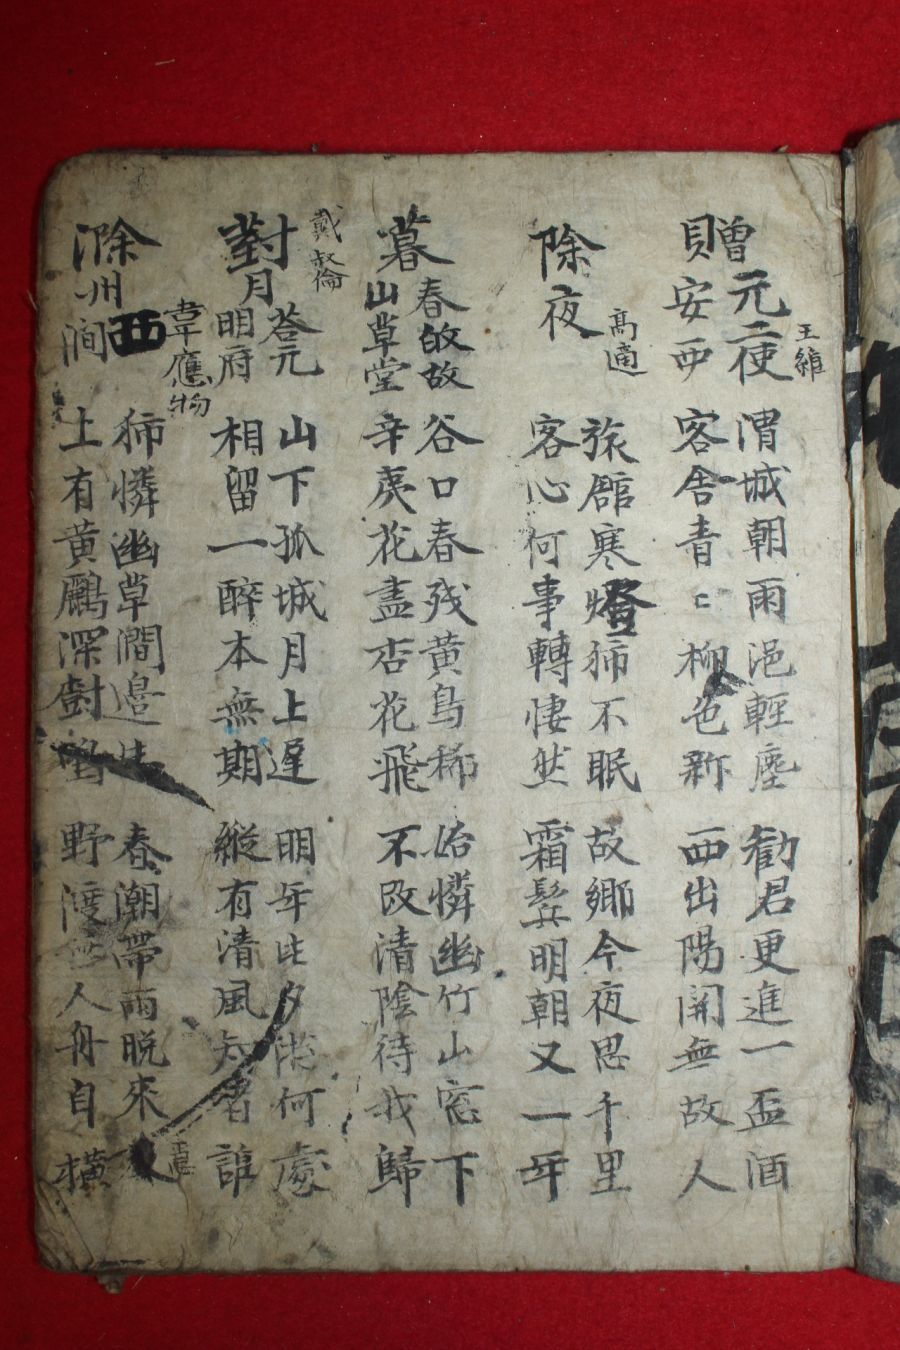 贈元二使
安西
王維
渭城朝雨浥輕塵
客舍青〻柳色新
勸君更進一盃酒
西出陽關無故人
除夜
高適
旅館寒燈獨不眠
客心何事轉悽然
故鄉今夜思千里
霜鬂明朝又一年
暮
春故故
山草堂
谷口春殘黃鳥稀
辛夷花盡杏花飛
怡憐幽竹山窓下
不改清陰待我歸
對
月
荅元
明府
戴叔倫
山下孤城月上遲
相留一醉本無期
明年此夕游何處
縱有清風知者誰
滁州西
澗
韋應物
獨憐幽草澗邊生
上有黃鸝深樹鳴
春潮帶雨晩來
野渡無人舟自橫